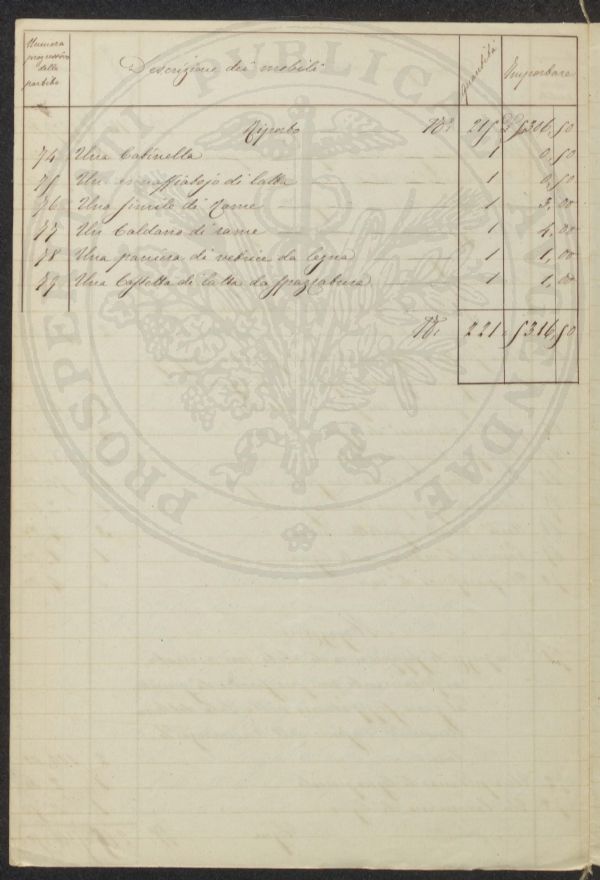 Numero progressivo delle partite
Descrizione dei mobili
quantità
Importare
Riporto 215 5306,50
74 Una Catinella 1 0,50
75 Un annaffiatojo di latta 1 0,50
76 Una simile di Rame 1 3,00
77 Un Caldano di rame 1 4,00
78 Una paniera di vetrice da legna 1 1,00
79 Una Cassetta di latta da spazzatura 1 1,00
221 5316,50
PROSPERITATI PUBLICAE AUGENDAE